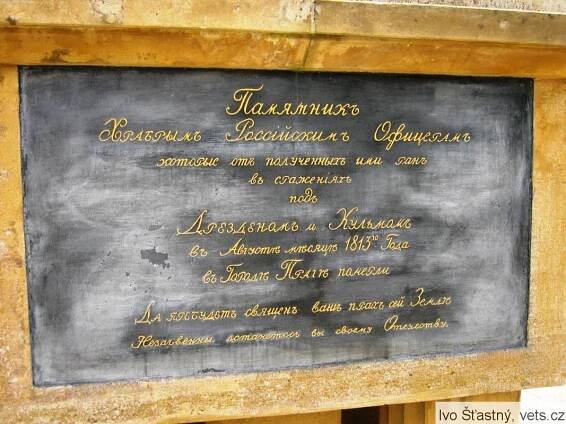 Памятникъ
Храбрымъ Россійскимъ Офицерамъ
которые отъ полученныхъ ими ранъ
въ сраженіяхъ
подъ
Дрезденомъ и Кульмомъ
въ Августѣ мѣсяцѣ 1813го Года
въ Городѣ Прагѣ померли
Да пребудетъ священъ вашъ прахъ сей Землѣ
Незабвенны остаетесь вы своему Отечеству.
Ivo Šťastný, vets.cz